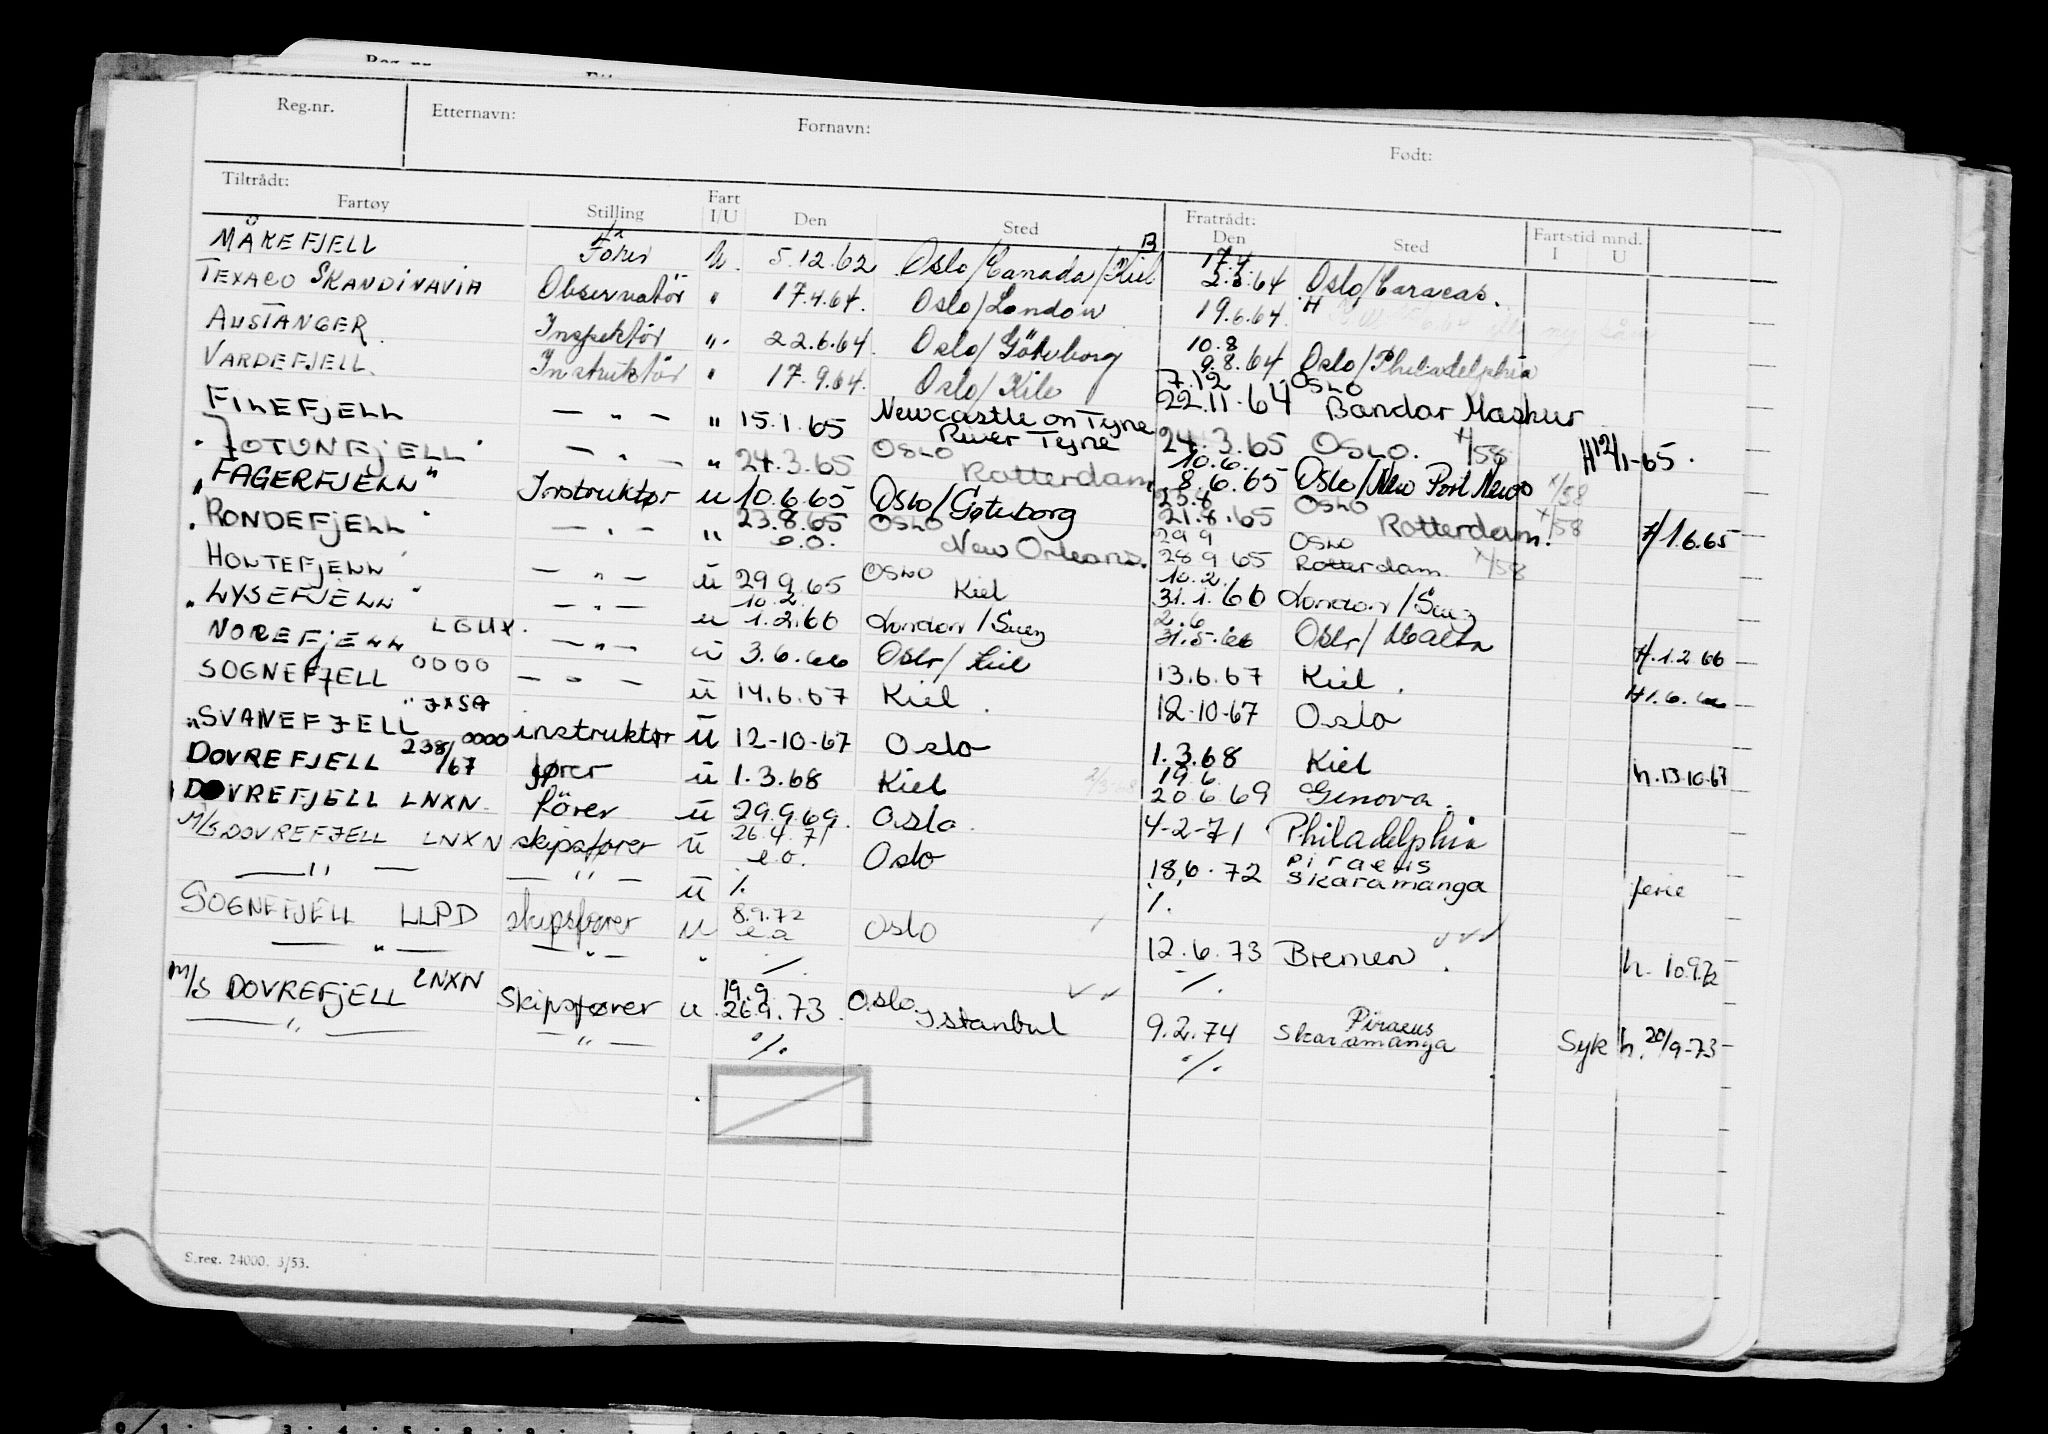 Reg.nr. Etternavn: Fornavn: Født:
Tiltrådt: Fratrådt: Fartstid mnd.
Fartøy Stilling Fart I/U Den Sted Den Sted I U
MÅKEFJELL Fører u. 5.12.62 Oslo/Canada/Kiel 17.4 2.3.64 Oslo/Caracas.
TEXACO SKANDINAVIA Observatör " 17.4.64. Oslo/London 19.6.64. H
AUSTANGER Inspektör ". 22.6.64. Oslo/Göteborg 10.8 9.8.64 Oslo/Philadelphia
VARDEFJELL. Instruktör " 17.9.64. Oslo/Kiel 7.12 22.11.64 OSLO Bandar Mashur
FILEFJELL — " — " 15.1.65 Newcastle on Tyne River Tyne 24.3.65 OSLO. X/58 H12/1-65.
JOTUNFJELL — " — " 24.3.65 OSLO Rotterdam 10.6. 8.6.65 Oslo/New Port News X/58
"FAGERFJELL" Instruktør u 10.6.65 Oslo/Gøteborg 23.8 21.8.65 OSLO Rotterdam. X/58 H1.6.65
"RONDEFJELL" — " — " 23.8.65 e.o. OSLO New Orleans. 29 9 28 9 65 OSLO Rotterdam X/58
HOLTEFJELL — " — u 29 9 65 OSLO Kiel 10.2. 31.1.66 London/Suez
"LYSEFJELL" — " — u 10.2. 1.2.66 London/Suez 2.6 31.5.66 Oslo/Malta H.1.2 66
NOREFJELL LGUX. — " — u 3.6.66 Oslo/Kiel 13.6.67 Kiel. H1.6.66
SOGNEFJELL 0000 — " — u 14.6.67 Kiel. 12-10-67 Oslo
"SVANEFJELL" JXSA instruktør u 12-10-67 Oslo 1.3.68 Kiel h.13.10.67
DOVREFJELL 238/67 0000 fører u 1.3.68 Kiel 19.6. 20.6.69 Genova.
DOVREFJELL LNXN fører u 29.9.69. Oslo. 4-2-71 Philadelphia
M/S DOVREFJELL LNXN skipsfører u 26.4.71 e.o. Oslo 18.6.72 Piraeus Skaramanga ferie
— " — — " — u ./. ./.
SOGNEFJELL LLPD skipsfører u 8.9.72 e.a Oslo 12.6.73 Bremen. h. 10.9.72
— " — — " — " ./. ./.
M/S DOVREFJELL LNXN Skipsfører u 19.9 26.9.73 Oslo, Istanbul 9.2.74 Piraeus Skaramanga Syk h. 20/9-73
— " — — " — ./. ./.
S.reg. 24000. 3/53.